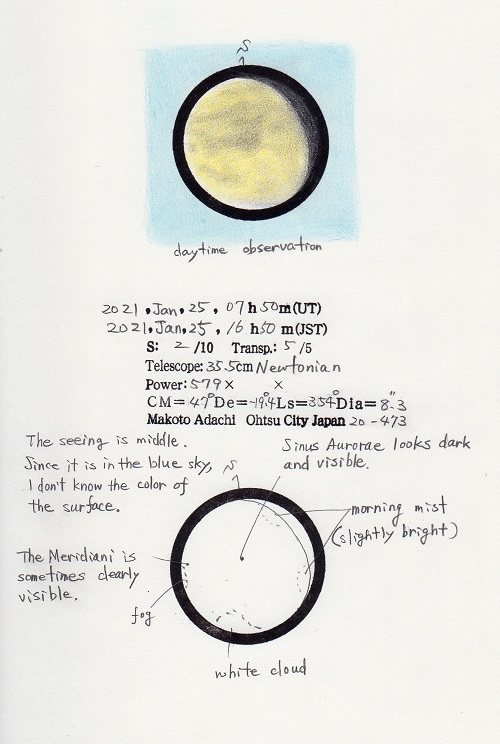 S
daytime observation
2021, Jan, 25, 07 h 50 m (UT)
2021, Jan, 25, 16 h 50 m (JST)
S: 2 /10 Transp.: 5 /5
Telescope: 35.5cm Newtonian
Power: 579 × ×
CM= 47° De= -19.4 Ls= 354° Dia= 8.″3
Makoto Adachi Ohtsu City Japan 20-473
The seeing is middle.
Since it is in the blue sky,
I don't know the color of
the surface.
Sinus Aurorae looks dark
and visible.
S
morning mist
(slightly bright)
The Meridiani is
sometimes clearly
visible.
fog
white cloud